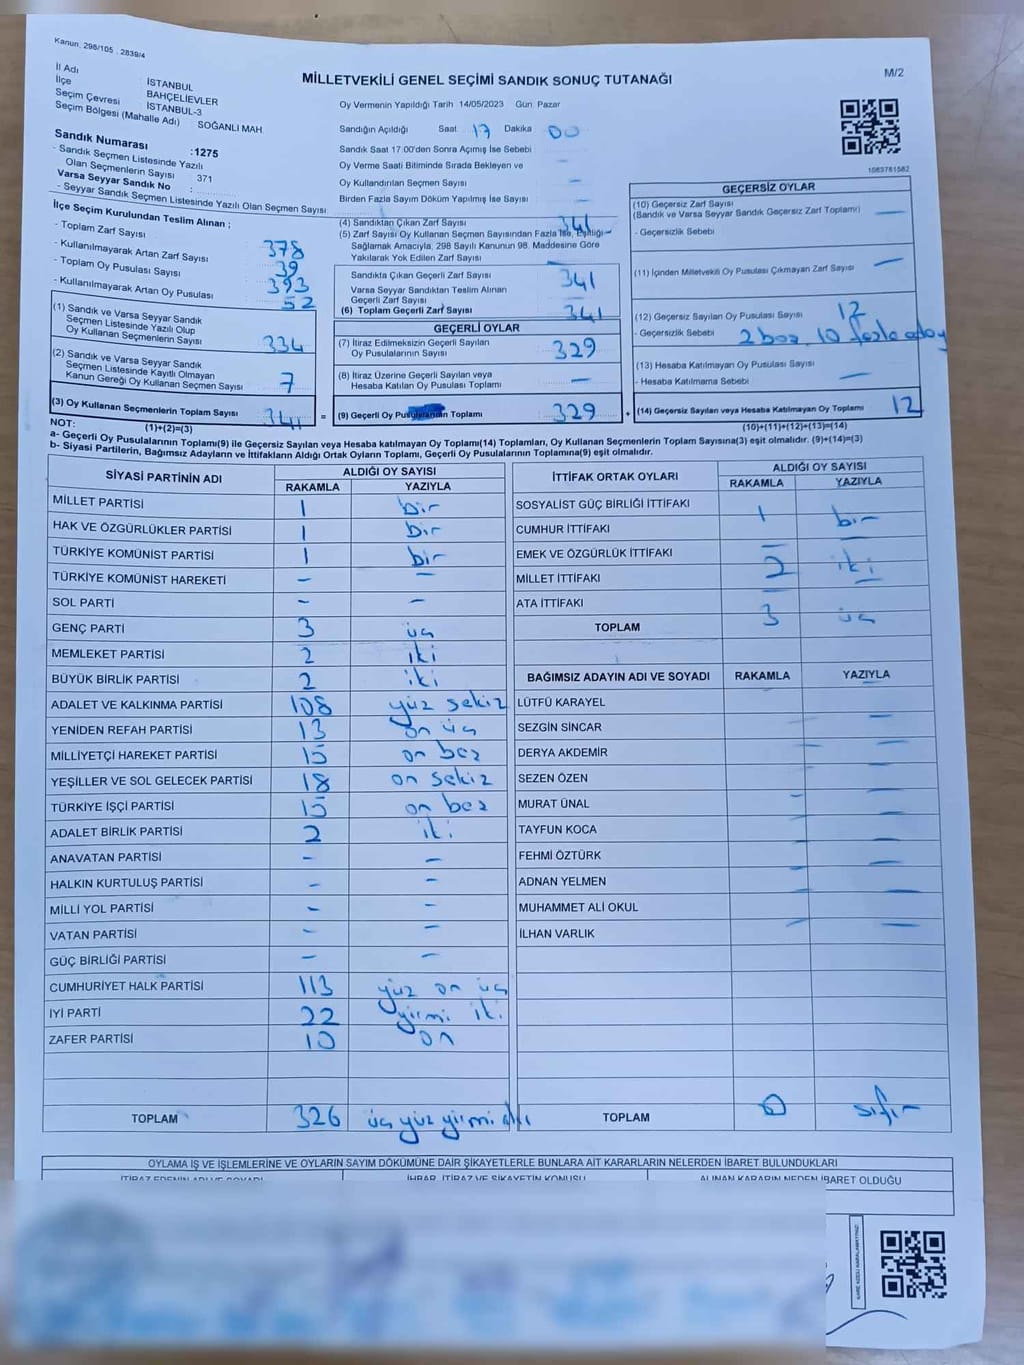 Kanun. 298/105 . 2839/4
MİLLETVEKİLİ GENEL SEÇİMİ SANDIK SONUÇ TUTANAĞI
M/2
İl Adı : İSTANBUL
İlçe : BAHÇELİEVLER
Seçim Çevresi : İSTANBUL-3
Seçim Bölgesi (Mahalle Adı) : SOĞANLI MAH.
Oy Vermenin Yapıldığı Tarih 14/05/2023 Gün: Pazar
Sandığın Açıldığı Saat 17 Dakika 00
Sandık Saat 17.00'den Sonra Açımış İse Sebebi
Oy Verme Saati Bitiminde Sırada Bekleyen ve
Oy Kullandırılan Seçmen Sayısı -
Birden Fazla Sayım Döküm Yapılmış İse Sayısı -
1063761562
Sandık Numarası :1275
- Sandık Seçmen Listesinde Yazılı
Olan Seçmenlerin Sayısı 371
Varsa Seyyar Sandık No :
- Seyyar Sandık Seçmen Listesinde Yazılı Olan Seçmen Sayısı
İlçe Seçim Kurulundan Teslim Alınan ;
- Toplam Zarf Sayısı 378
- Kullanılmayarak Artan Zarf Sayısı 39
- Toplam Oy Pusulası Sayısı 393
- Kullanılmayarak Artan Oy Pusulası 52
(1) Sandık ve Varsa Seyyar Sandık
Seçmen Listesinde Yazılı Olup
Oy Kullanan Seçmenlerin Sayısı 334
(2) Sandık ve Varsa Seyyar Sandık
Seçmen Listesinde Kayıtlı Olmayan
Kanun Gereği Oy Kullanan Seçmen Sayısı 7
(3) Oy Kullanan Seçmenlerin Toplam Sayısı 341 =
(1)+(2)=(3)
(4) Sandıktan Çıkan Zarf Sayısı 341
(5) Zarf Sayısı Oy Kullanan Seçmen Sayısından Fazla İse, Eşitliği
Sağlamak Amacıyla, 298 Sayılı Kanunun 98. Maddesine Göre
Yakılarak Yok Edilen Zarf Sayısı -
Sandıkta Çıkan Geçerli Zarf Sayısı 341
Varsa Seyyar Sandıktan Teslim Alınan
Geçerli Zarf Sayısı
(6) Toplam Geçerli Zarf Sayısı 341
GEÇERLİ OYLAR
(7) İtiraz Edilmeksizin Geçerli Sayılan
Oy Pusulalarının Sayısı 329
(8) İtiraz Üzerine Geçerli Sayılan veya
Hesaba Katılan Oy Pusulası Toplamı -
(9) Geçerli Oy Pusulalarının Toplamı 329 +
GEÇERSİZ OYLAR
(10) Geçersiz Zarf Sayısı
(Sandık ve Varsa Seyyar Sandık Geçersiz Zarf Toplamı) -
- Geçersizlik Sebebi
(11) İçinden Milletvekili Oy Pusulası Çıkmayan Zarf Sayısı -
(12) Geçersiz Sayılan Oy Pusulası Sayısı 12
- Geçersizlik Sebebi 2 boş, 10 fazla aday
(13) Hesaba Katılmayan Oy Pusulası Sayısı
- Hesaba Katılmama Sebebi -
(14) Geçersiz Sayılan veya Hesaba Katılmayan Oy Toplamı 12
(10)+(11)+(12)+(13)=(14)
NOT:
a- Geçerli Oy Pusulalarının Toplamı(9) ile Geçersiz Sayılan veya Hesaba katılmayan Oy Toplamı(14) Toplamları, Oy Kullanan Seçmenlerin Toplam Sayısına(3) eşit olmalıdır. (9)+(14)=(3)
b- Siyasi Partilerin, Bağımsız Adayların ve İttifakların Aldığı Ortak Oyların Toplamı, Geçerli Oy Pusulalarının Toplamına(9) eşit olmalıdır.
SİYASİ PARTİNİN ADI ALDIĞI OY SAYISI
RAKAMLA YAZIYLA
MİLLET PARTİSİ 1 bir
HAK VE ÖZGÜRLÜKLER PARTİSİ 1 bir
TÜRKİYE KOMÜNİST PARTİSİ 1 bir
TÜRKİYE KOMÜNİST HAREKETİ - -
SOL PARTİ - -
GENÇ PARTİ 3 üç
MEMLEKET PARTİSİ 2 iki
BÜYÜK BİRLİK PARTİSİ 2 iki
ADALET VE KALKINMA PARTİSİ 108 yüz sekiz
YENİDEN REFAH PARTİSİ 13 on üç
MİLLİYETÇİ HAREKET PARTİSİ 15 on beş
YEŞİLLER VE SOL GELECEK PARTİSİ 18 on sekiz
TÜRKİYE İŞÇİ PARTİSİ 15 on beş
ADALET BİRLİK PARTİSİ 2 iki
ANAVATAN PARTİSİ - -
HALKIN KURTULUŞ PARTİSİ - -
MİLLİ YOL PARTİSİ - -
VATAN PARTİSİ - -
GÜÇ BİRLİĞİ PARTİSİ - -
CUMHURİYET HALK PARTİSİ 113 yüz on üç
İYİ PARTİ 22 yirmi iki
ZAFER PARTİSİ 10 on
TOPLAM 326 üç yüz yirmi altı
İTTİFAK ORTAK OYLARI ALDIĞI OY SAYISI
RAKAMLA YAZIYLA
SOSYALİST GÜÇ BİRLİĞİ İTTİFAKI
CUMHUR İTTİFAKI 1 bir
EMEK VE ÖZGÜRLÜK İTTİFAKI - -
MİLLET İTTİFAKI 2 iki
ATA İTTİFAKI - -
TOPLAM 3 üç
BAĞIMSIZ ADAYIN ADI VE SOYADI RAKAMLA YAZIYLA
LÜTFÜ KARAYEL
SEZGİN SİNCAR -
DERYA AKDEMİR - -
SEZEN ÖZEN -
MURAT ÜNAL - -
TAYFUN KOCA - -
FEHMİ ÖZTÜRK - -
ADNAN YELMEN - -
MUHAMMET ALİ OKUL -
İLHAN VARLIK - -
TOPLAM 0 sıfır
OYLAMA İŞ VE İŞLEMLERİNE VE OYLARIN SAYIM DÖKÜMÜNE DAİR ŞİKAYETLERLE BUNLARA AİT KARARLARIN NELERDEN İBARET BULUNDUKLARI
İTİRAZ EDENİN ADI VE SOYADI İHBAR, İTİRAZ VE ŞİKAYETİN KONUSU ALINAN KARARIN NEDEN İBARET OLDUĞU